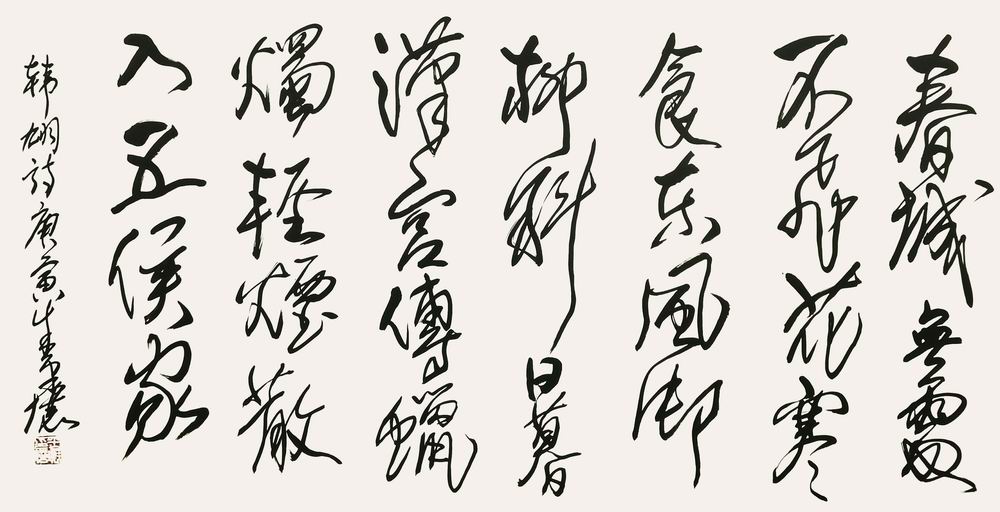 春城無處
不飛花寒
食東風御
柳斜日暮
漢宮傳蠟
燭輕煙散
入五侯家
韓翃詩庚寅年